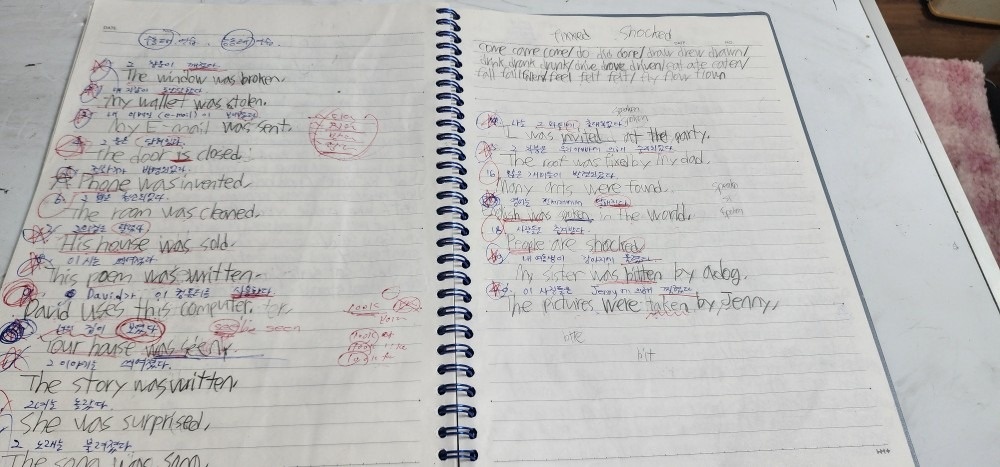 수동태 연습, 능동태 연습.
그 창문이 깨졌다.
The window was broken.
내 지갑이 도난당했다
My wallet was stolen.
내 이메일 (e-mail) 이 보내졌다
My E-mail was sent.
그 문은 닫혀있다.
The door is closed.
전화기가 발명되었다.
Phone was invented.
The room was cleaned.
그의 집은 팔렸다
His house was sold.
이 시는 쓰여졌다
This poem was written.
David가 이 컴퓨터를 사용한다
David uses this computer.
너의 집이 보였다
seen
Your house was seen.
그 이야기는 쓰여졌다.
The story was written
그녀는 놀랐다.
She was surprised.
그 노래는 불려졌다
The song was
Shocked
come came come/ do did done/ draw drew drawn/
drink drank drunk/ drive drove driven/ eat ate eaten/
fall fell fallen/ feel felt felt/ fly flew flown
spoken
I was invited at the party.
The roof was fixed by my dad.
16 많은 개미들이 발견되었다.
Many ants were found.
was in the world.
18 사람들은
People are shocked
내 여동생이 강아지에 물렸다
My sister was bitten by a dog.
이 사진들은 Jenny에 의해 찍혔다
The pictures were taken by Jenny.
bit